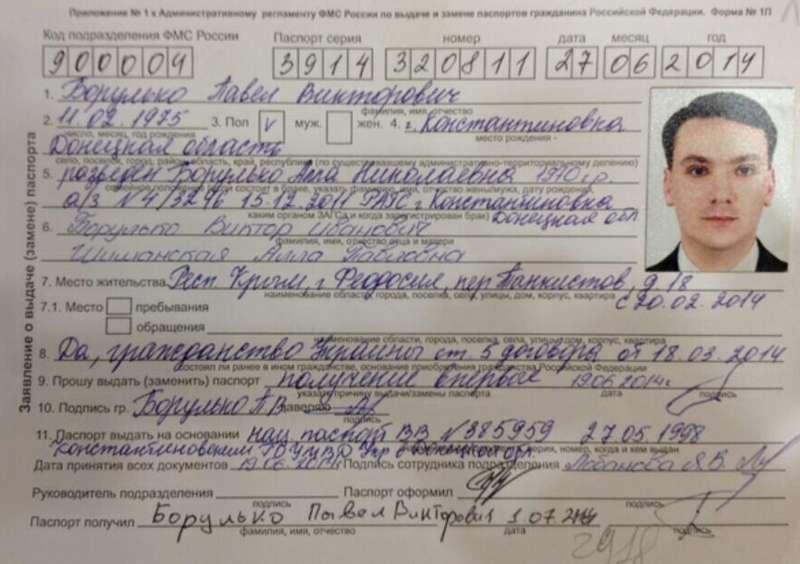 Приложение № 1 к Административному регламенту ФМС России по выдаче и замене паспортов гражданина Российской Федерации. Форма № 1П
Код подразделения ФМС России Паспорт серия номер дата месяц год
900004 3914 320811 27 06 2014
1. Борулько Павел Викторович
фамилия, имя, отчество
2. 11.02.1975 3. Пол V муж. жен. 4. г. Константиновка
число, месяц, год рождения место рождения -
Донецкая область
село, поселок, город, район, область, край, республика (по существовавшему административно-территориальному делению)
5. разведен Борулько Алла Николаевна 1970 г.р.
семейное положение
а/з № 4/3296 15.12.2011 г. Константиновка
каким органом ЗАГСа и когда зарегистрирован брак) Донецкая обл
6. Борулько Виктор Иванович
фамилия, имя, отчество отца и матери
Шишанская Алла Павловна
7. Место жительства Респ Крым, г. Феодосия, пер Танкистов, д 18
наименование области, города, поселка, села, улицы, дом, корпус, квартира
с 20.02.2014
7.1. Место пребывания
обращения
наименование области, города, поселка, села, улицы, дом, корпус, квартира
8. Да, гражданство Украины ст. 5 договора от 18.03.2014
состоял ли ранее в ином гражданстве, основание приобретения гражданства Российской Федерации
9. Прошу выдать (заменить) паспорт получение впервые 19.06.2014г.
указать причину выдачи/замены паспорта дата подпись
10. Подпись гр. Борулько П В заверяю
подпись
11. Паспорт выдать на основании нац паспорт ВВ № 385959 27.05.1998
номер, когда и кем выдан
Константиновским Донецкой обл.
Дата принятия всех документов 19.06.2014 Подпись сотрудника подразделения Лобанова Я.В.
Руководитель подразделения Паспорт оформил
подпись подпись
Паспорт получил Борулько Павел Викторович 1.07.2014
фамилия, имя, отчество дата подпись
Заявление о выдаче (замене) паспорта